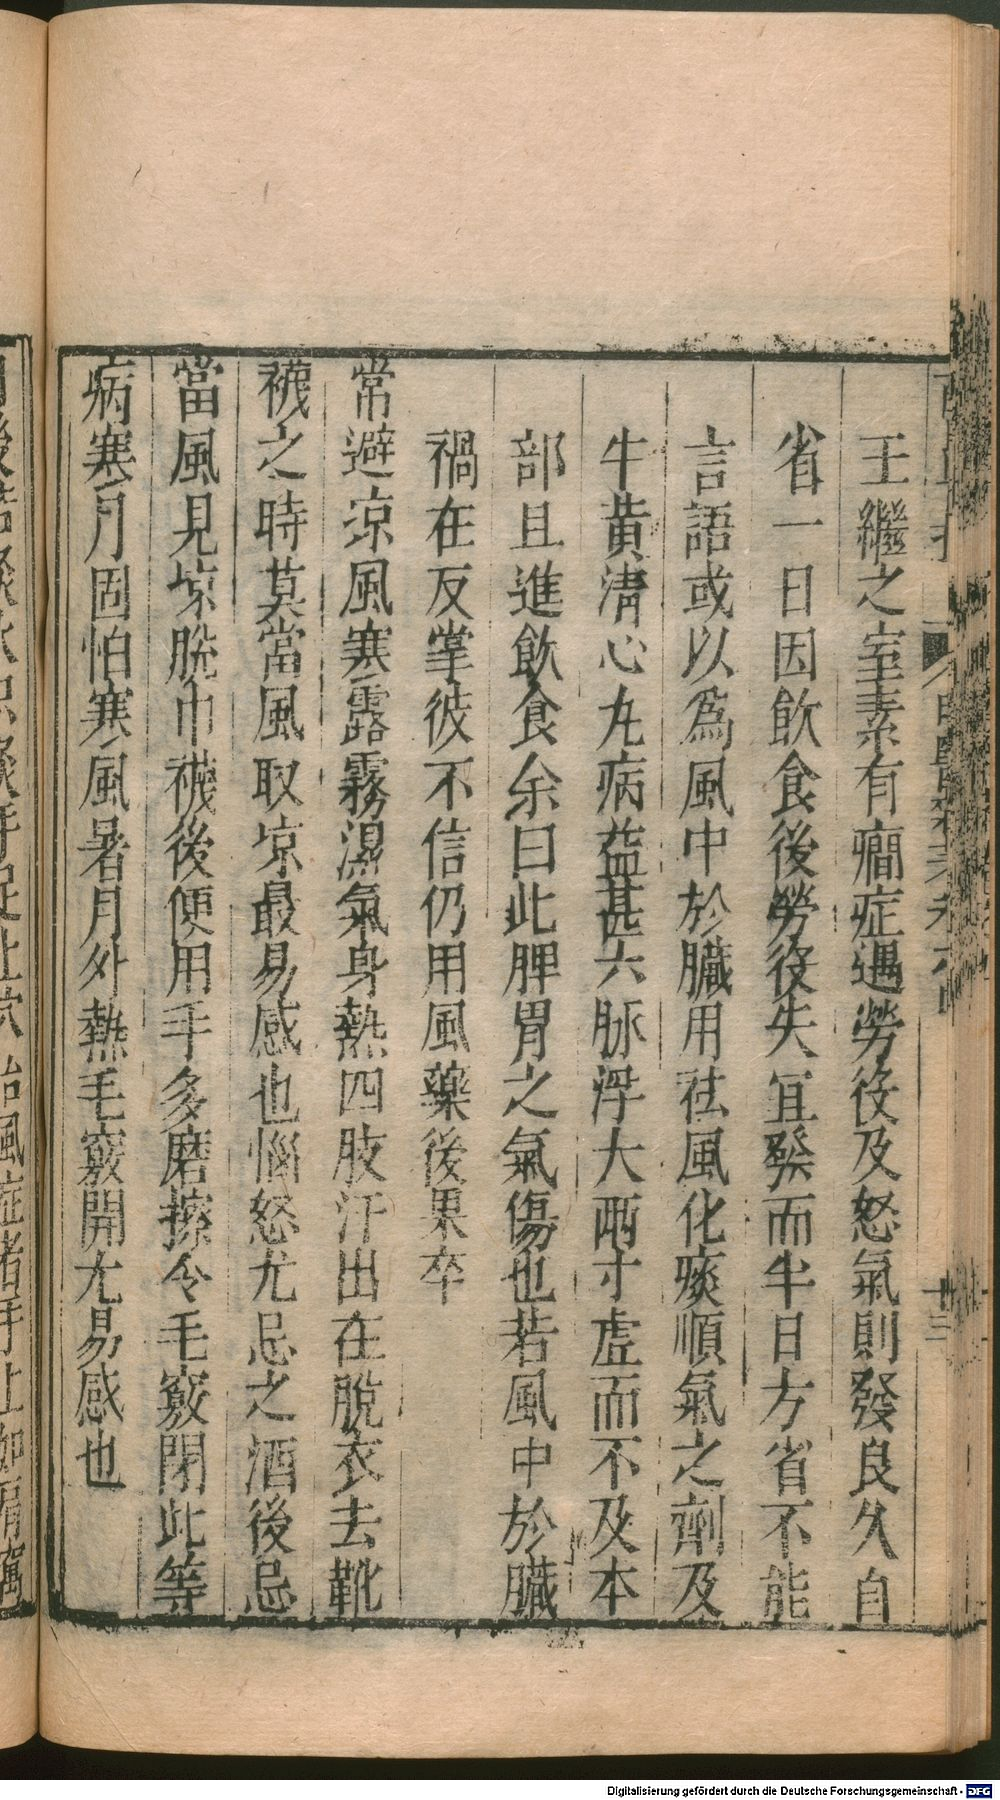 王繼之室素有癇症遇勞役及怒氣則發良久自
省一日因飲食後勞役失冝發而半日方省不能
言語或以爲風中於臟用祛風化痰順氣之劑及
牛黄清心丸病益甚六脉浮大兩寸虚而不及本
部且進飲食余曰此脾胃之氣傷也若風中於臟
禍在反掌彼不信仍用風藥後果卒
常避凉風寒露霧濕氣身熱四肢汗出在脫衣去靴
襪之時莫當風取凉最易感也惱怒尤忌之酒後忌
當風見凉脫巾襪後便用手多磨擦令毛竅閉此等
病寒月固怕寒風暑月外熱毛竅開尤易感也
十三
Digitalisierung gefördert durch die Deutsche Forschungsgemeinschaft - DFG